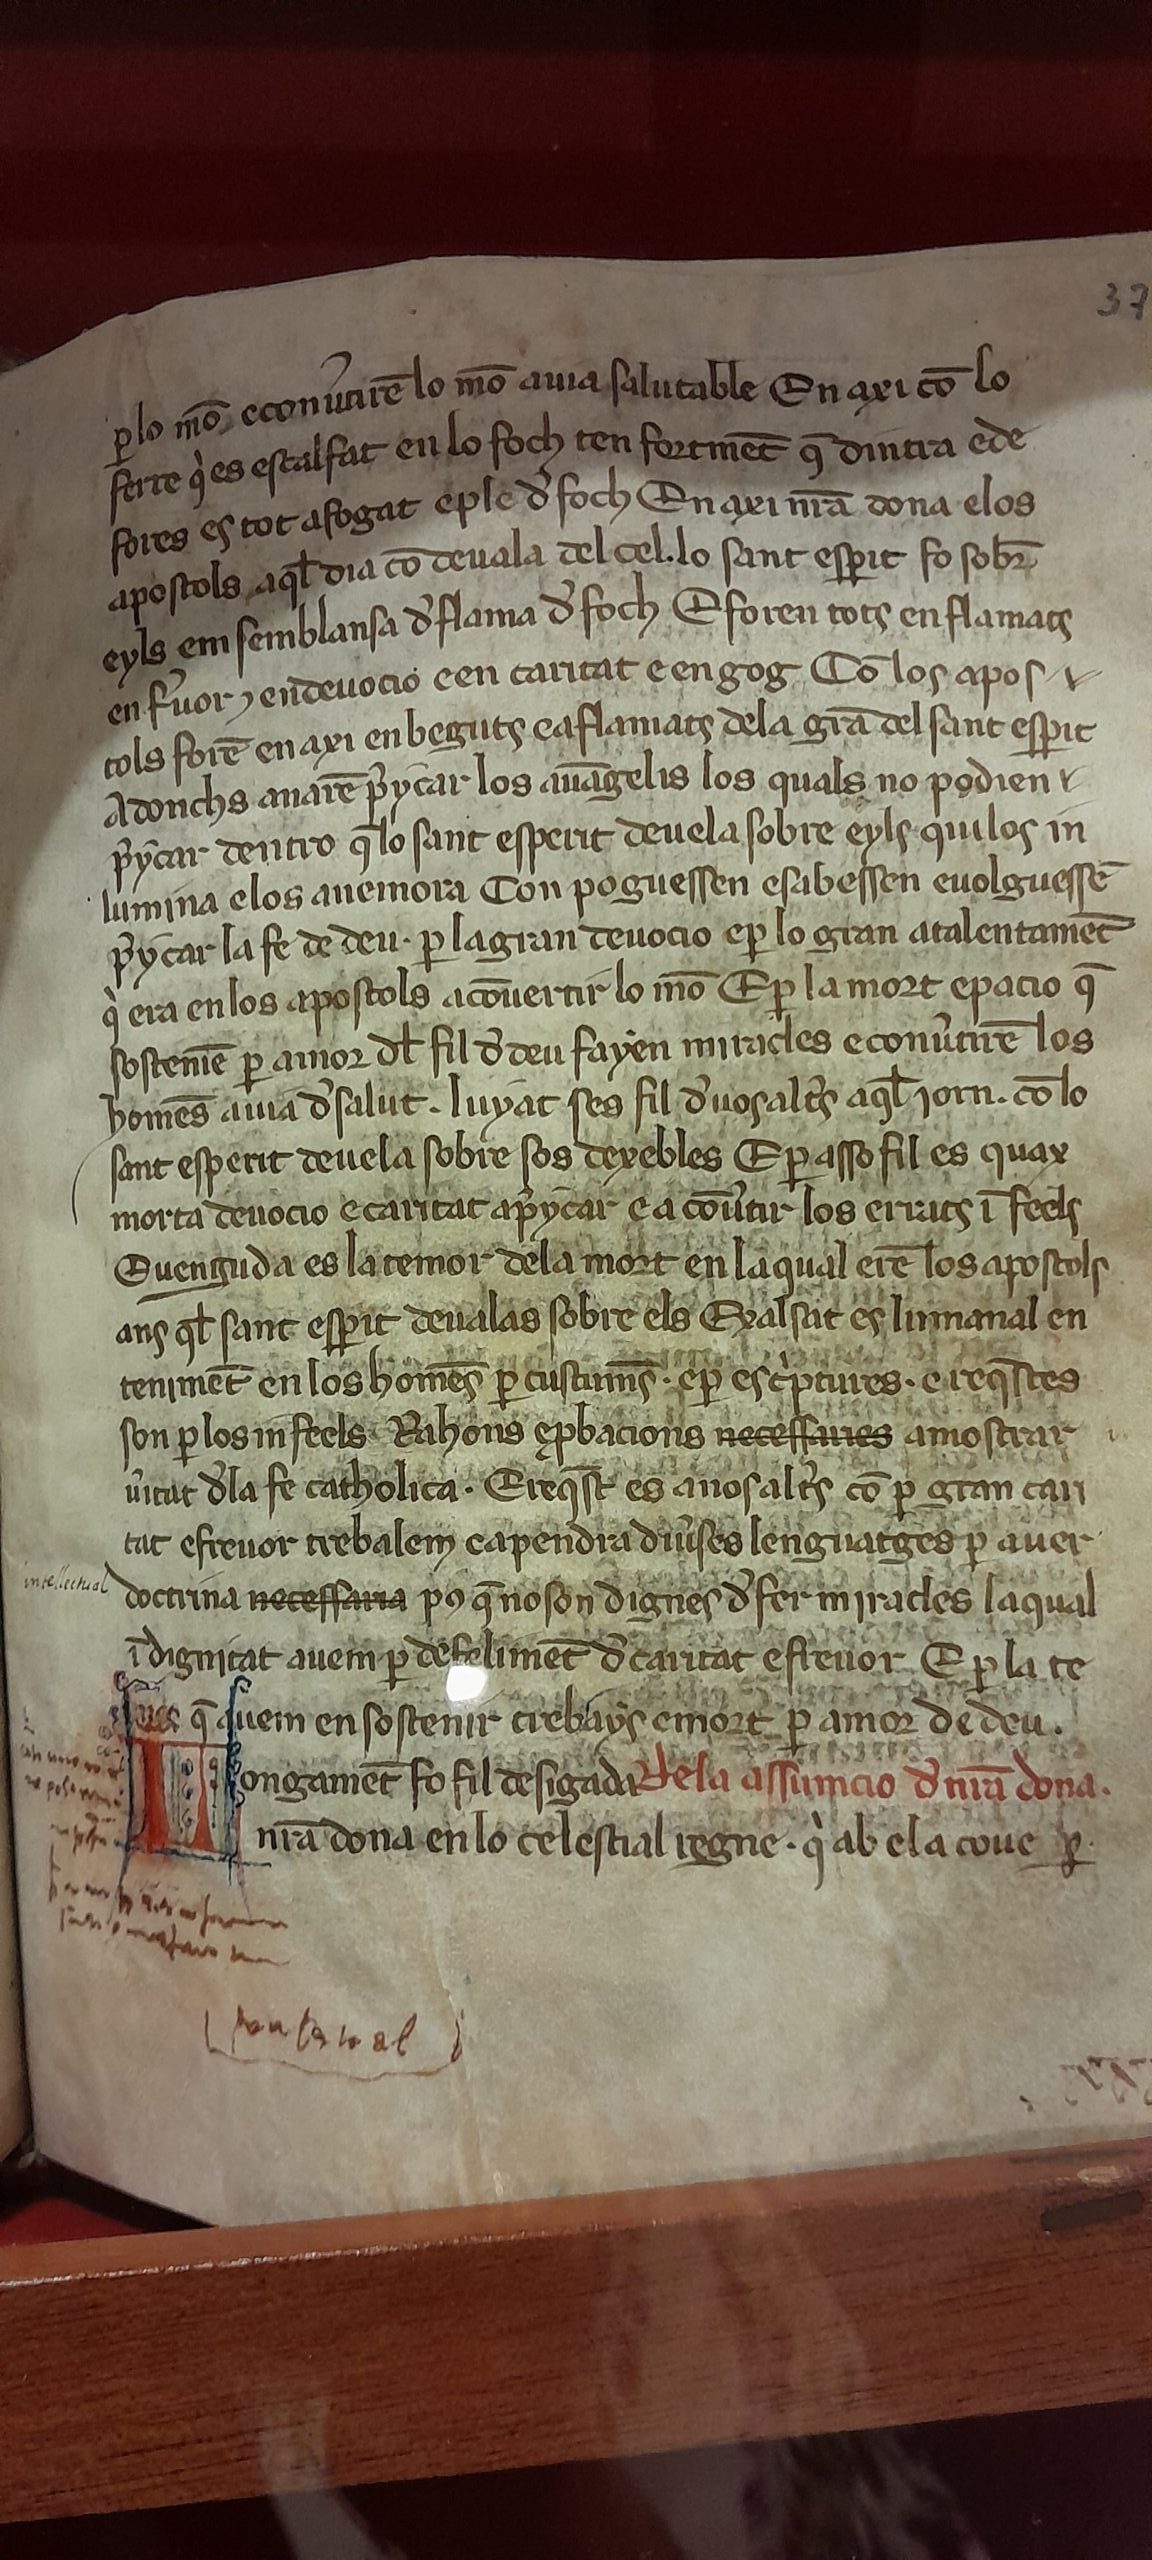 37
p̲lo mō econũtirē lo mō auia salutable En axi cō lo
ferre q̇ es escalfat en lo foch ten fortmēt q̄ dintra ede
fores es tot afogat eple d̃ foch En axi nr̄a dona elos
apostols aql̃ dia cō deuala del cel. lo sant esp̲it fo sobr̄
eyls em semblansa d̃ flama d̃ foch E foren tots enflamats
en f̃uor, en deuocio e en caritat e en gog Cō los apos
tols forē en axi enbeguts e aflamats dela grā del sant esp̲it
Adonchs anarē p̃ycar los auāgelis los quals no podien
p̃ycar dentro q̄ lo sant esperit deuela sobre eyls qui los in
lumina elos auemora Con poguessen esabessen euolguessē
p̃ycar la fe de deu. p̲ la gran deuocio ep̲ lo gran atalentamēt
q̇ era en los apostols acōuertir lo mō E p̲ la mort epacio q̄
sostenië p̲ amor dl̃ fil d̃ deu fayen miracles e conũtirē los
homēs auia d̃ salut. luyat ses fil d̃ uosalt̃s aql̃ jorn. cō lo
sant esperit deuela sobre sos dexebles E p̲ asso fil es quax
morta deuocio e caritat ap̃ycar e a cōũtir los errats ī feels
E uenguda es la temor dela mort en la qual erē los apostols
ans ql̃ sant esp̲it deualas sobre els Exalsat es lumanal en
tenimēt en los homēs p̲ custums̄. ep̲ esc̀ptures. e req̄stes
son p̲ los infeels Rahons ep̲bacions necessaries amostrar
ũitat d̃la fe catholica. E req̄st es anosalt̃s cō p̲ gran cari
tat e freuor trebalem e apendra diũses lenguatges p̲ auer
intellectual
doctrina necessaria pꝯ q̄ no son dignes d̃ fer miracles la qual
ī dignitat auem p̲ defelimēt d̃ caritat e freuor E p̲ la te
q̄ auem en sostenir trebays emort p̲ amor de deu.
Longamēt fo fil desigada De la assumcio d̃ nr̄a dona.
nr̄a dona en lo celestial regne. q̇ ab ela coue p̲